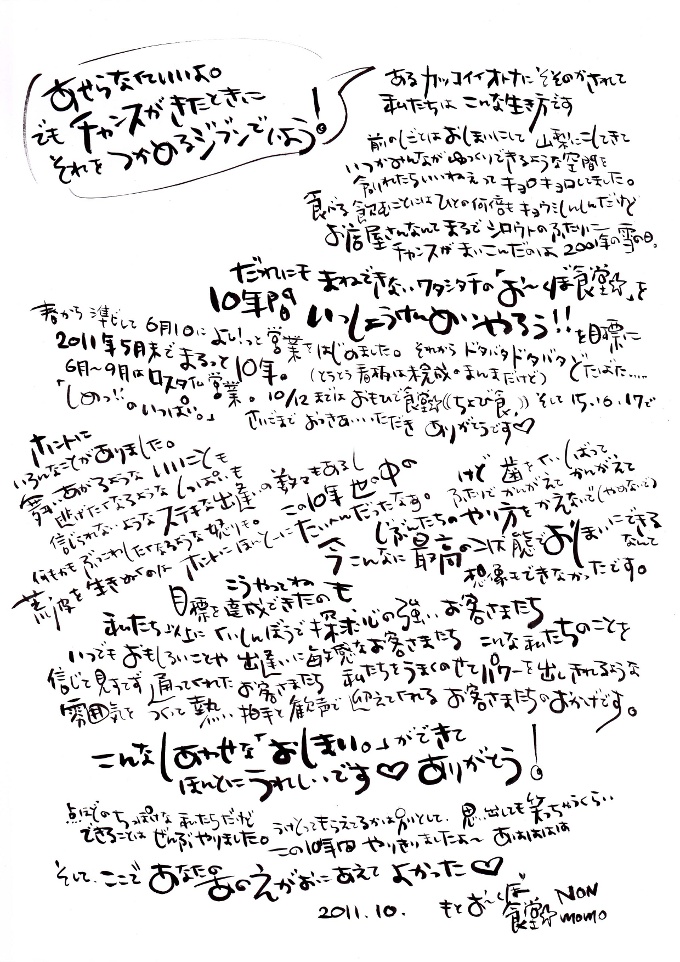 あせらなくていいよ。
でも チャンスがきたときに
それを つかめるジブンでいよう!
ある カッコイイオトナに そそのかされて
私たちは こんな生き方です
前のしごとは おしまいにして 山梨にこしてきて
いつかみんながゆっくりできるような空間を
創れたらいいねえって キョロキョロしました。
食べる 飲むことにはひとの何倍も キョウミしんしんだけど
お店屋さんなんて まるで シロウトのふたりに
チャンスがまいこんだのは 2001年の雪の日。
だれにも まねできない ワタシタチの「お〜くぼ食堂」を
10年間 いっしょうけんめいやろう!! を目標に
春から 準じして 6月10に よし!っと 営業をはじめました。それから ドタバタドタバタ
2011年5月末で まるっと 10年。(とうとう 看板は未完成のまんまだけど) どたばた.....
6月〜9月は ロスタイム営業。10/12までは おもひで食堂((ちょび食。)) そして 15.16.17で
「しめっ!!のいっぱい。」 さいごまで おつきあいいただき ありがとうです♡
ホントに
いろんなことがありました。
舞いあがるような いいことも
逃げたくなるような しっぱいも
信じられないような ステキな出逢いの数々もあるし
何もかも ぶっこわしたくなるような 怒りも。この10年 世の中の
荒波を生きぬくのは ホントに ほんとーに たいへんだったなす。
けど 歯をくいしばって
ふたりで かんがえて かんがえて
じぶんたちの やり方を かえないで(やめないで)
今 こんなに 最高の状態で おしまいにできる
なんて
想像もできなかったです。
こうやってね
目標を達成できたのも
私たち以上に くいしんぼうで 探求心の強い お客さまたち
いつでも おもしろいことや 出逢いに 敏感なお客さまたち こんな私たちのことを
信じて見すてず 通ってくれた お客さまたち 私たちをうまくのせて パワーを出しきれるような
雰囲気を つくって 熱い 拍手と歓声で 迎えてくれる お客さまたちのおかげです。
こんな しあわせな「おしまい。」ができて
ほんとに うれしいです♡ ありがとう!
点ほどの ちっぽけな 私たちだけど
できることは ぜんぶ やりました。 うけとってもらえてるかは 別として、思い出しても 笑っちゃうくらい
この10年間 やりきりましたよ〜 あはははは
そして、ここで あなたの あのえがおに あえて よかった♡
2011.10. もと お〜くぼ食堂 NON
momo